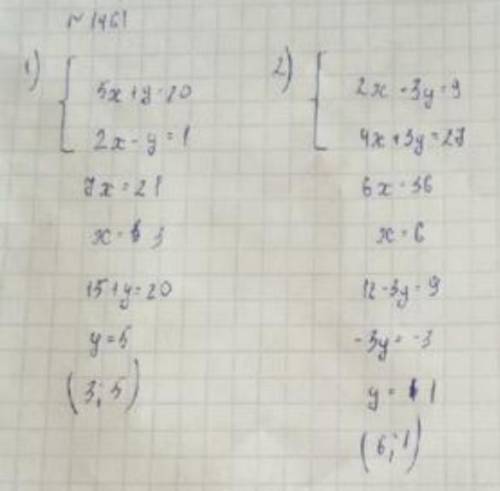 № 1461
1)
5x+y=20
2x-y=1
7x=21
x=3
15+y=20
y=5
(3; 5)
2)
2x-3y=9
4x+3y=27
6x=36
x=6
12-3y=9
-3y=-3
y=1
(6; 1)